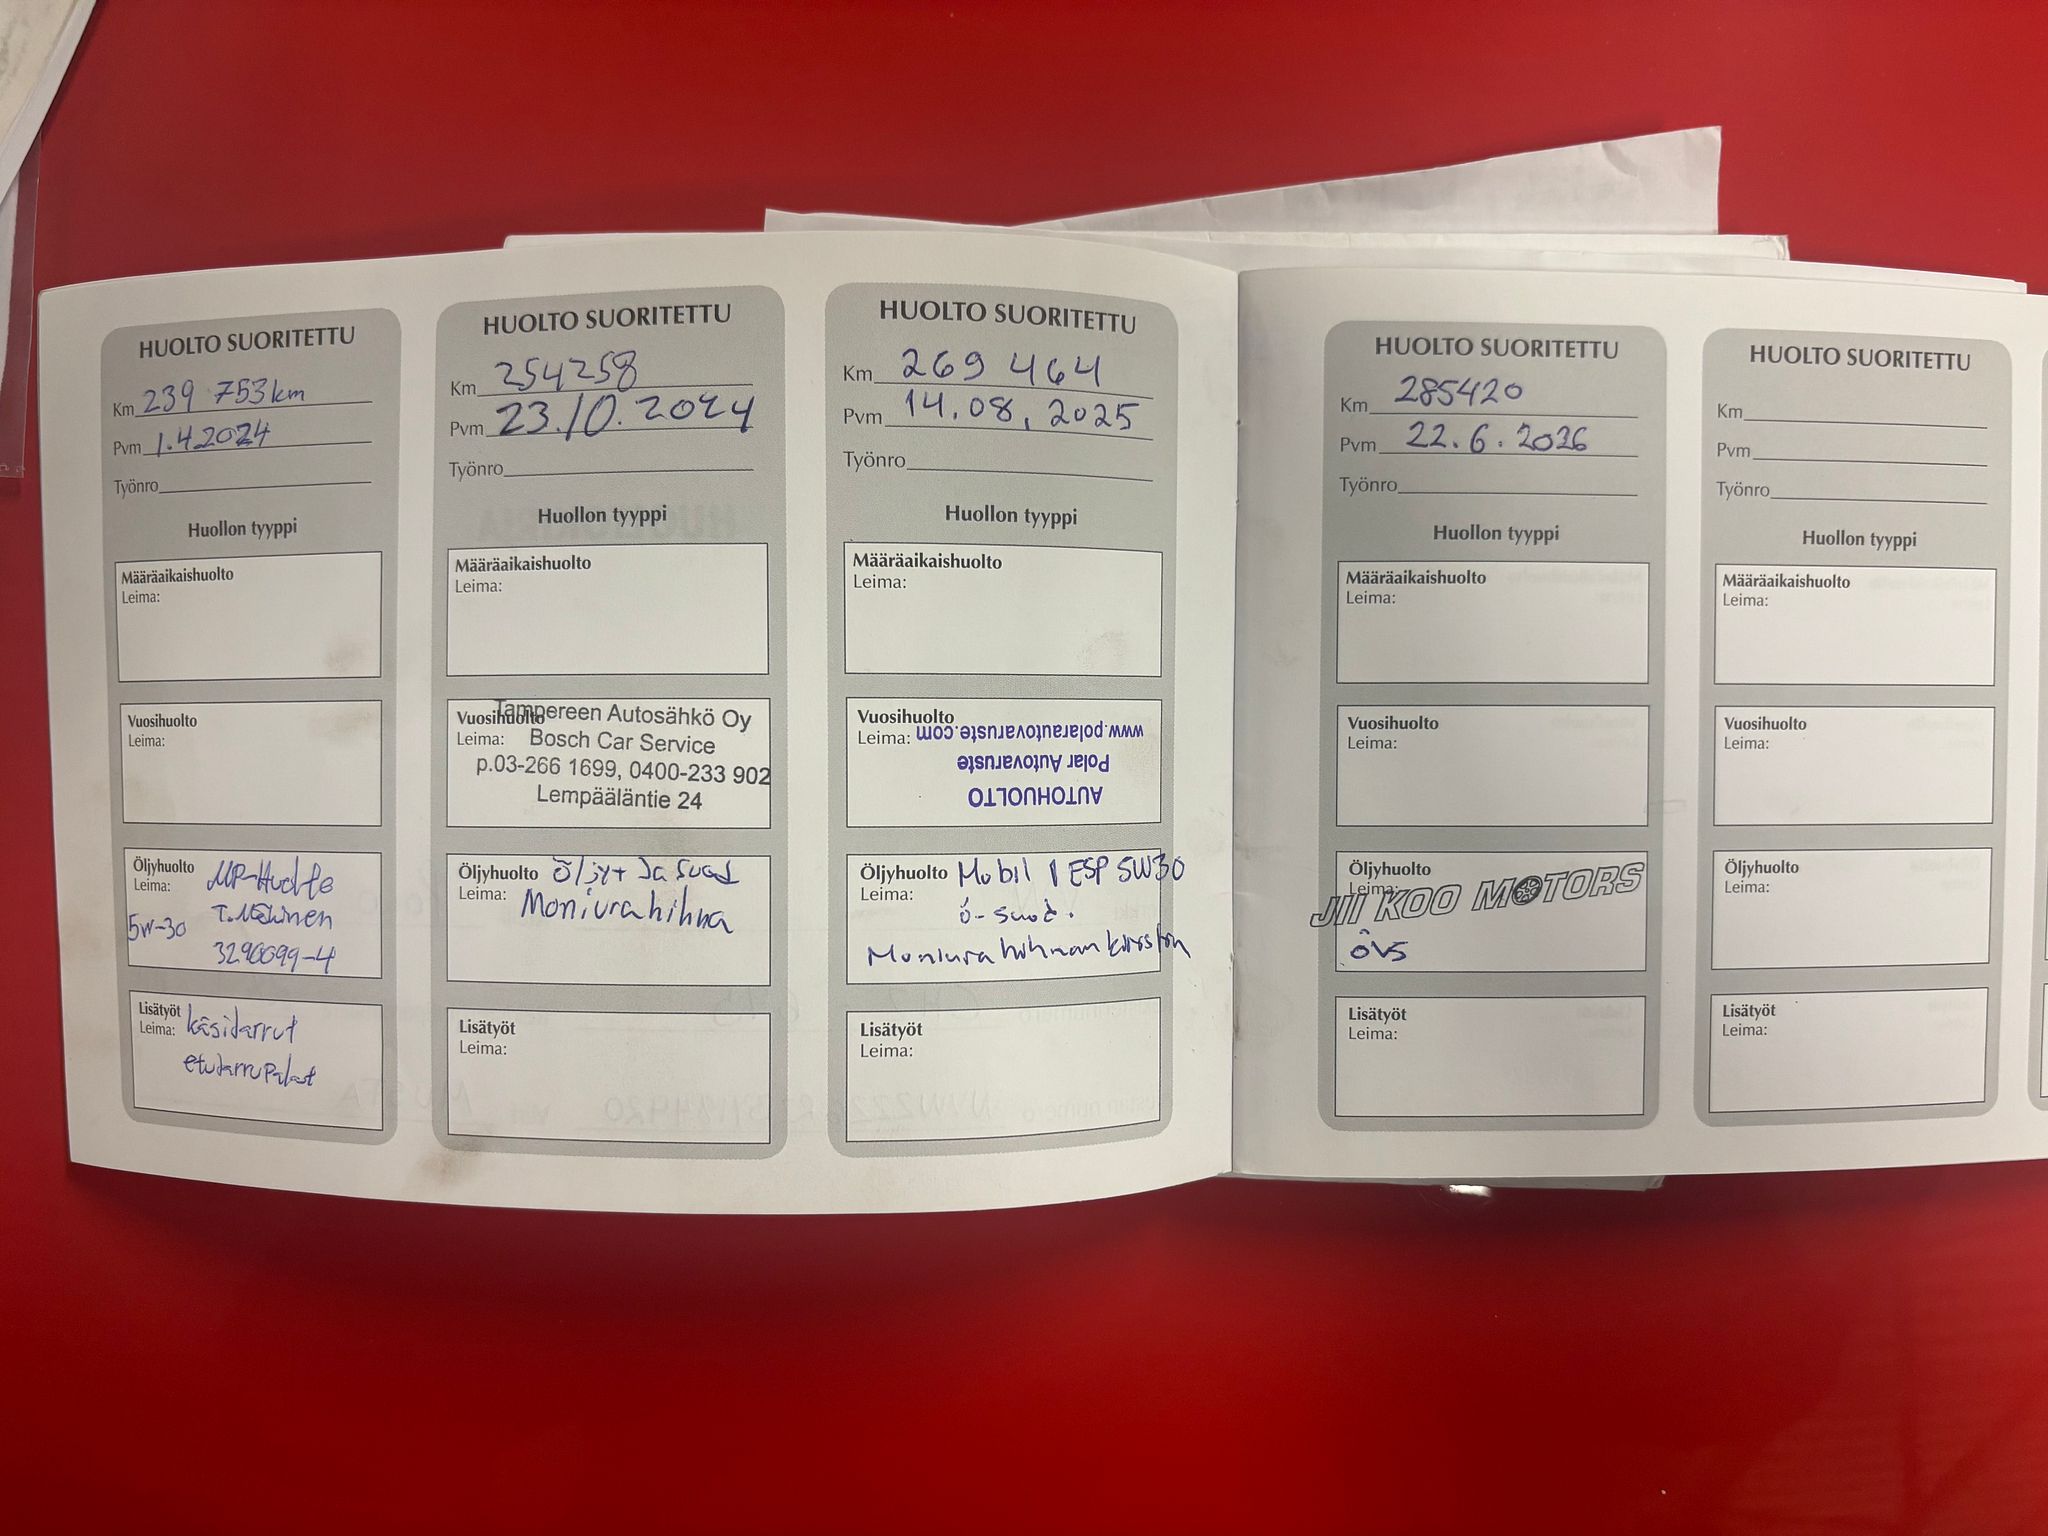 HUOLTO SUORITETTU
Km 239 753 km
Pvm 1.4.2024
Työnro
Huollon tyyppi
Määräaikaishuolto
Leima:
Vuosihuolto
Leima:
Öljyhuolto MP-Huolto
Leima: T. Mäkinen
5W-30
3290099-4
Lisätyöt käsijarrut
Leima:
etujarrupalat
HUOLTO SUORITETTU
Km 254258
Pvm 23.10.2024
Työnro
Huollon tyyppi
Määräaikaishuolto
Leima:
Vuosihuolto
Leima:
Tampereen Autosähkö Oy
Bosch Car Service
p.03-266 1699, 0400-233 902
Lempääläntie 24
Öljyhuolto Öljyt ja suod
Leima: Moniurahihna
Lisätyöt
Leima:
HUOLTO SUORITETTU
Km 269 464
Pvm 14.08.2025
Työnro
Huollon tyyppi
Määräaikaishuolto
Leima:
Vuosihuolto
Leima:
AUTOHUOLTO
Polar Autovaruste
www.polarautovaruste.com
Öljyhuolto Mobil 1 ESP 5W30
Leima: ö-suod.
Moniurahihnan
Lisätyöt
Leima:
HUOLTO SUORITETTU
Km 285420
Pvm 22.6.2026
Työnro
Huollon tyyppi
Määräaikaishuolto
Leima:
Vuosihuolto
Leima:
Öljyhuolto
Leima:
JII KOO MOTORS
ÖVS
Lisätyöt
Leima:
HUOLTO SUORITETTU
Km
Pvm
Työnro
Huollon tyyppi
Määräaikaishuolto
Leima:
Vuosihuolto
Leima:
Öljyhuolto
Leima:
Lisätyöt
Leima: